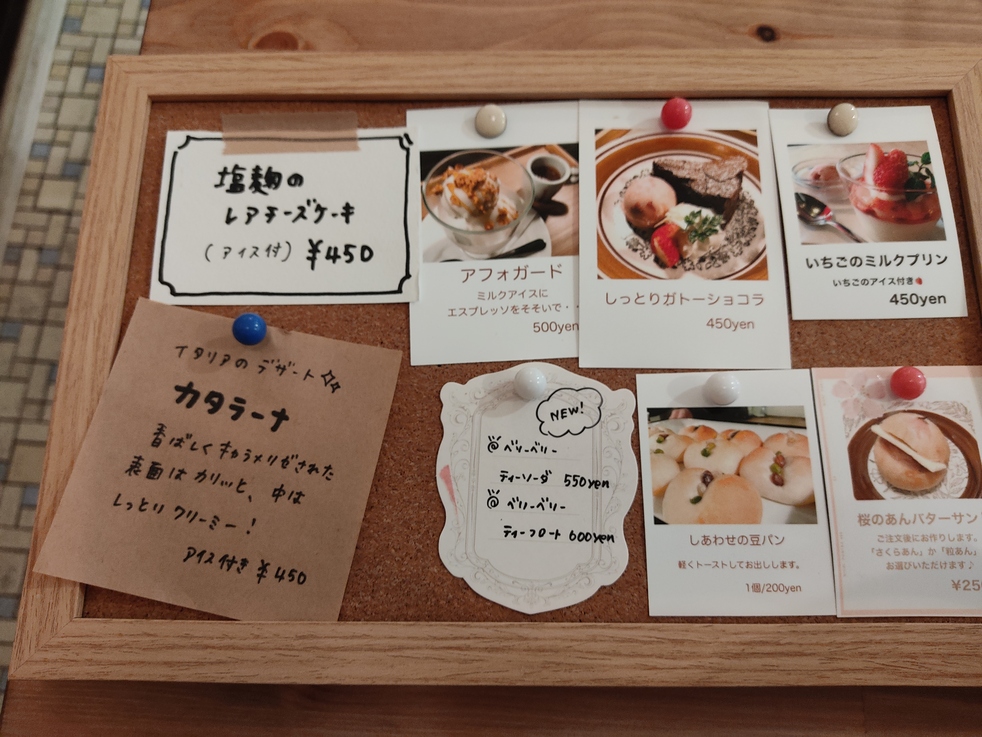 塩麹の
レアチーズケーキ
(アイス付) ¥450
アフォガード
ミルクアイスに
エスプレッソをそそいで・・
500yen
しっとりガトーショコラ
450yen
いちごのミルクプリン
いちごのアイス付き🍓
450yen
イタリアのデザート☆☆
カタラーナ
香ばしくキャラメリゼされた
表面はカリッと、中は
しっとりクリーミー!
アイス付き ¥450
NEW!
ベリーベリー
ティーソーダ 550yen
ベリーベリー
ティーフロート 600yen
しあわせの豆パン
軽くトーストしてお出しします。
1個/200yen
桜のあんバターサン
ご注文後にお作りします。
「さくらあん」か「粒あん」
お選びいただけます♪
¥25